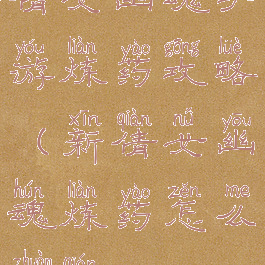 yóu liàn yào gōng lüè
游炼药攻略
xīn qiàn nǚ yōu
（新倩女幽
hún liàn yào zěn me
魂炼药怎么